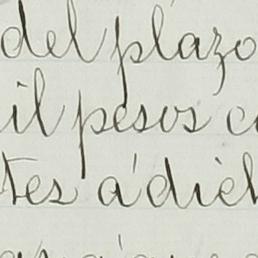 del plazo
il pesos c
tes á dich